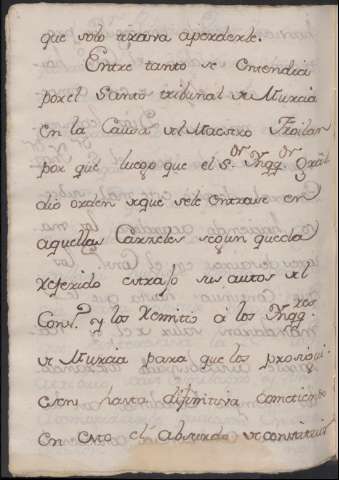 que solo tirava a perderle.
Entre tanto se entendia
por el Santo tribunal de Murcia
en la Causa del Maestro Froilan
por que luego que el S.or Ynqq.or Gral
dio orden de que sele entrase en
aquellas Carzeles segun queda
referido extrajo sus autos del
Cons.o y los remitio á los Ynqq.res
de Murcia para que los prosigui-
esen hasta difinitiva cometiendo
en esto el absurdo de constituir